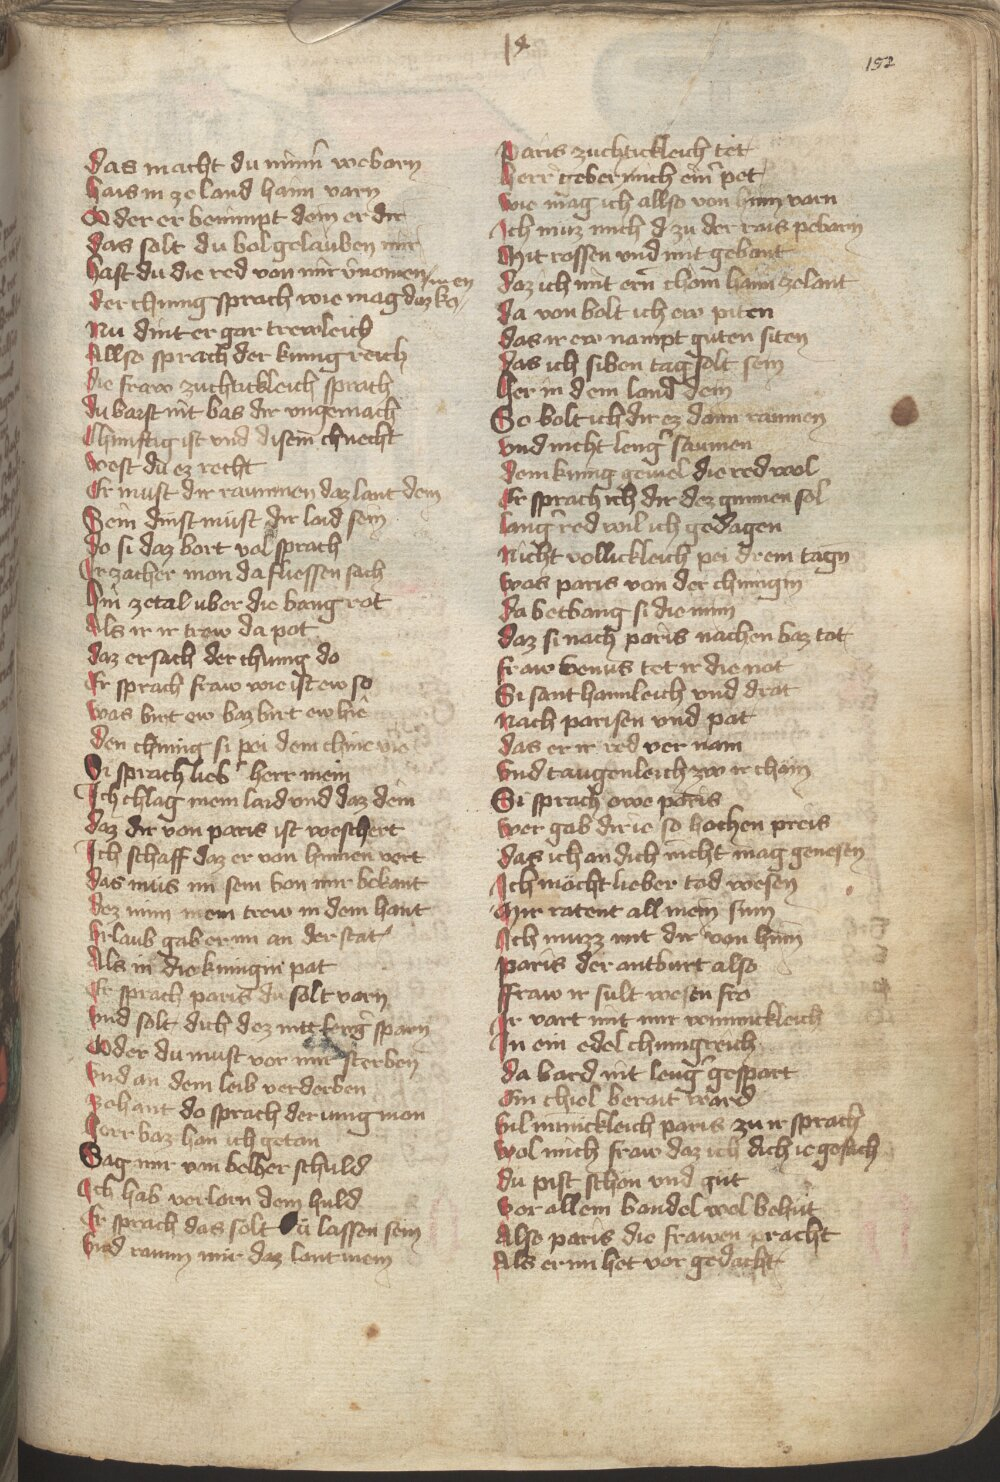 152
das macht du nimm webarn
hais in ze land haim varn
Oder er benimpt dein er dir
das solt du bol gelauben mir
hast du die red von mir v̄nomen
der chunig sprach wie mag daz ko/men
Nu dint er gar trewleich
Allso sprach der kunig reich
die fraw zuchtickleich sprach
du barst nit bas dir ungemach
Chunftig ist und disem chnecht
west du ez recht
Er must dir raumen daz lant dein
Sein dinst müst dir laid sein
Do si daz bort vol sprach
Ir zacher mon da fliessen sach
hin zetal uber die bang rot
Als ir ir trew da pot
daz ersach der chunig do
Er sprach fraw wie ist ew so
Was birt ew baz birt ew hie
den chunig si pei dem chine vie
Si sprach lieb' herr mein
Ich chlag mein laid und daz dein
daz dir von paris ist weschert
Ich schaff daz er von hinnen vert
das mus im sein von mir bekant
dez nim mein trew in dein hant
Urlaub gab er im an der stat
Als in die kunigin pat
Er sprach paris du solt varn
Und solt dich dez nitt leng' sparn
Oder du must vor mir sterben
Und an dem leib verderben
zehant do sprach der iung man
herr baz han ich getan
Sag mir von belher schuld
Ich hab verlorn dein huld
Er sprach das solt du lassen sein
Und raum mir daz lant mein
Paris zuchtickleich tet
herr geber mich ein' pet
wie mag ich allso von hinn varn
Ich muz mich d zu der rais pebarn
Mit rossen und mit gebant
daz ich mit ern chom haim ze lant
da von bolt ich ew piten
das ir ew nampt guten siten
das ich siben tag solt sein
her in dem land dein
So bolt ich dir ez dann raumen
und nicht leng' saumen
dem kunig geviel die red wol
Er sprach ich dir dez gunnen sol
lang' red wil ich gedagen
Nicht vollickleich pei drein tagn
was paris von der chunigin
da betbang si die minn
daz si nach paris nachen baz tot
fraw venus tet ir die not
Si sant haimleich und drat
Nach parisen und pat
das er ir red ver nam
und taugenleich zw ir cham
Si sprach owe paris
wer gab dir ie so hochen preis
das ich an dich nicht mag genesen
Ich möcht lieber tod wesen
Mir ratent all mein sinn
Ich muzz mit dir von hinn
paris der antburt also
ffraw ir sult wesen fro
Ir vart mit mir wunnickleich
In ein edel chunigreich
da bard nit leng' gespart
Ein chiel berait ward
vil minickleich paris zu ir sprach
wol mich fraw daz ich dich ie gesach
du pist schon und gut
vor allem bandel wol behüt
Also paris die frawen pracht
Als er im het vor gedacht